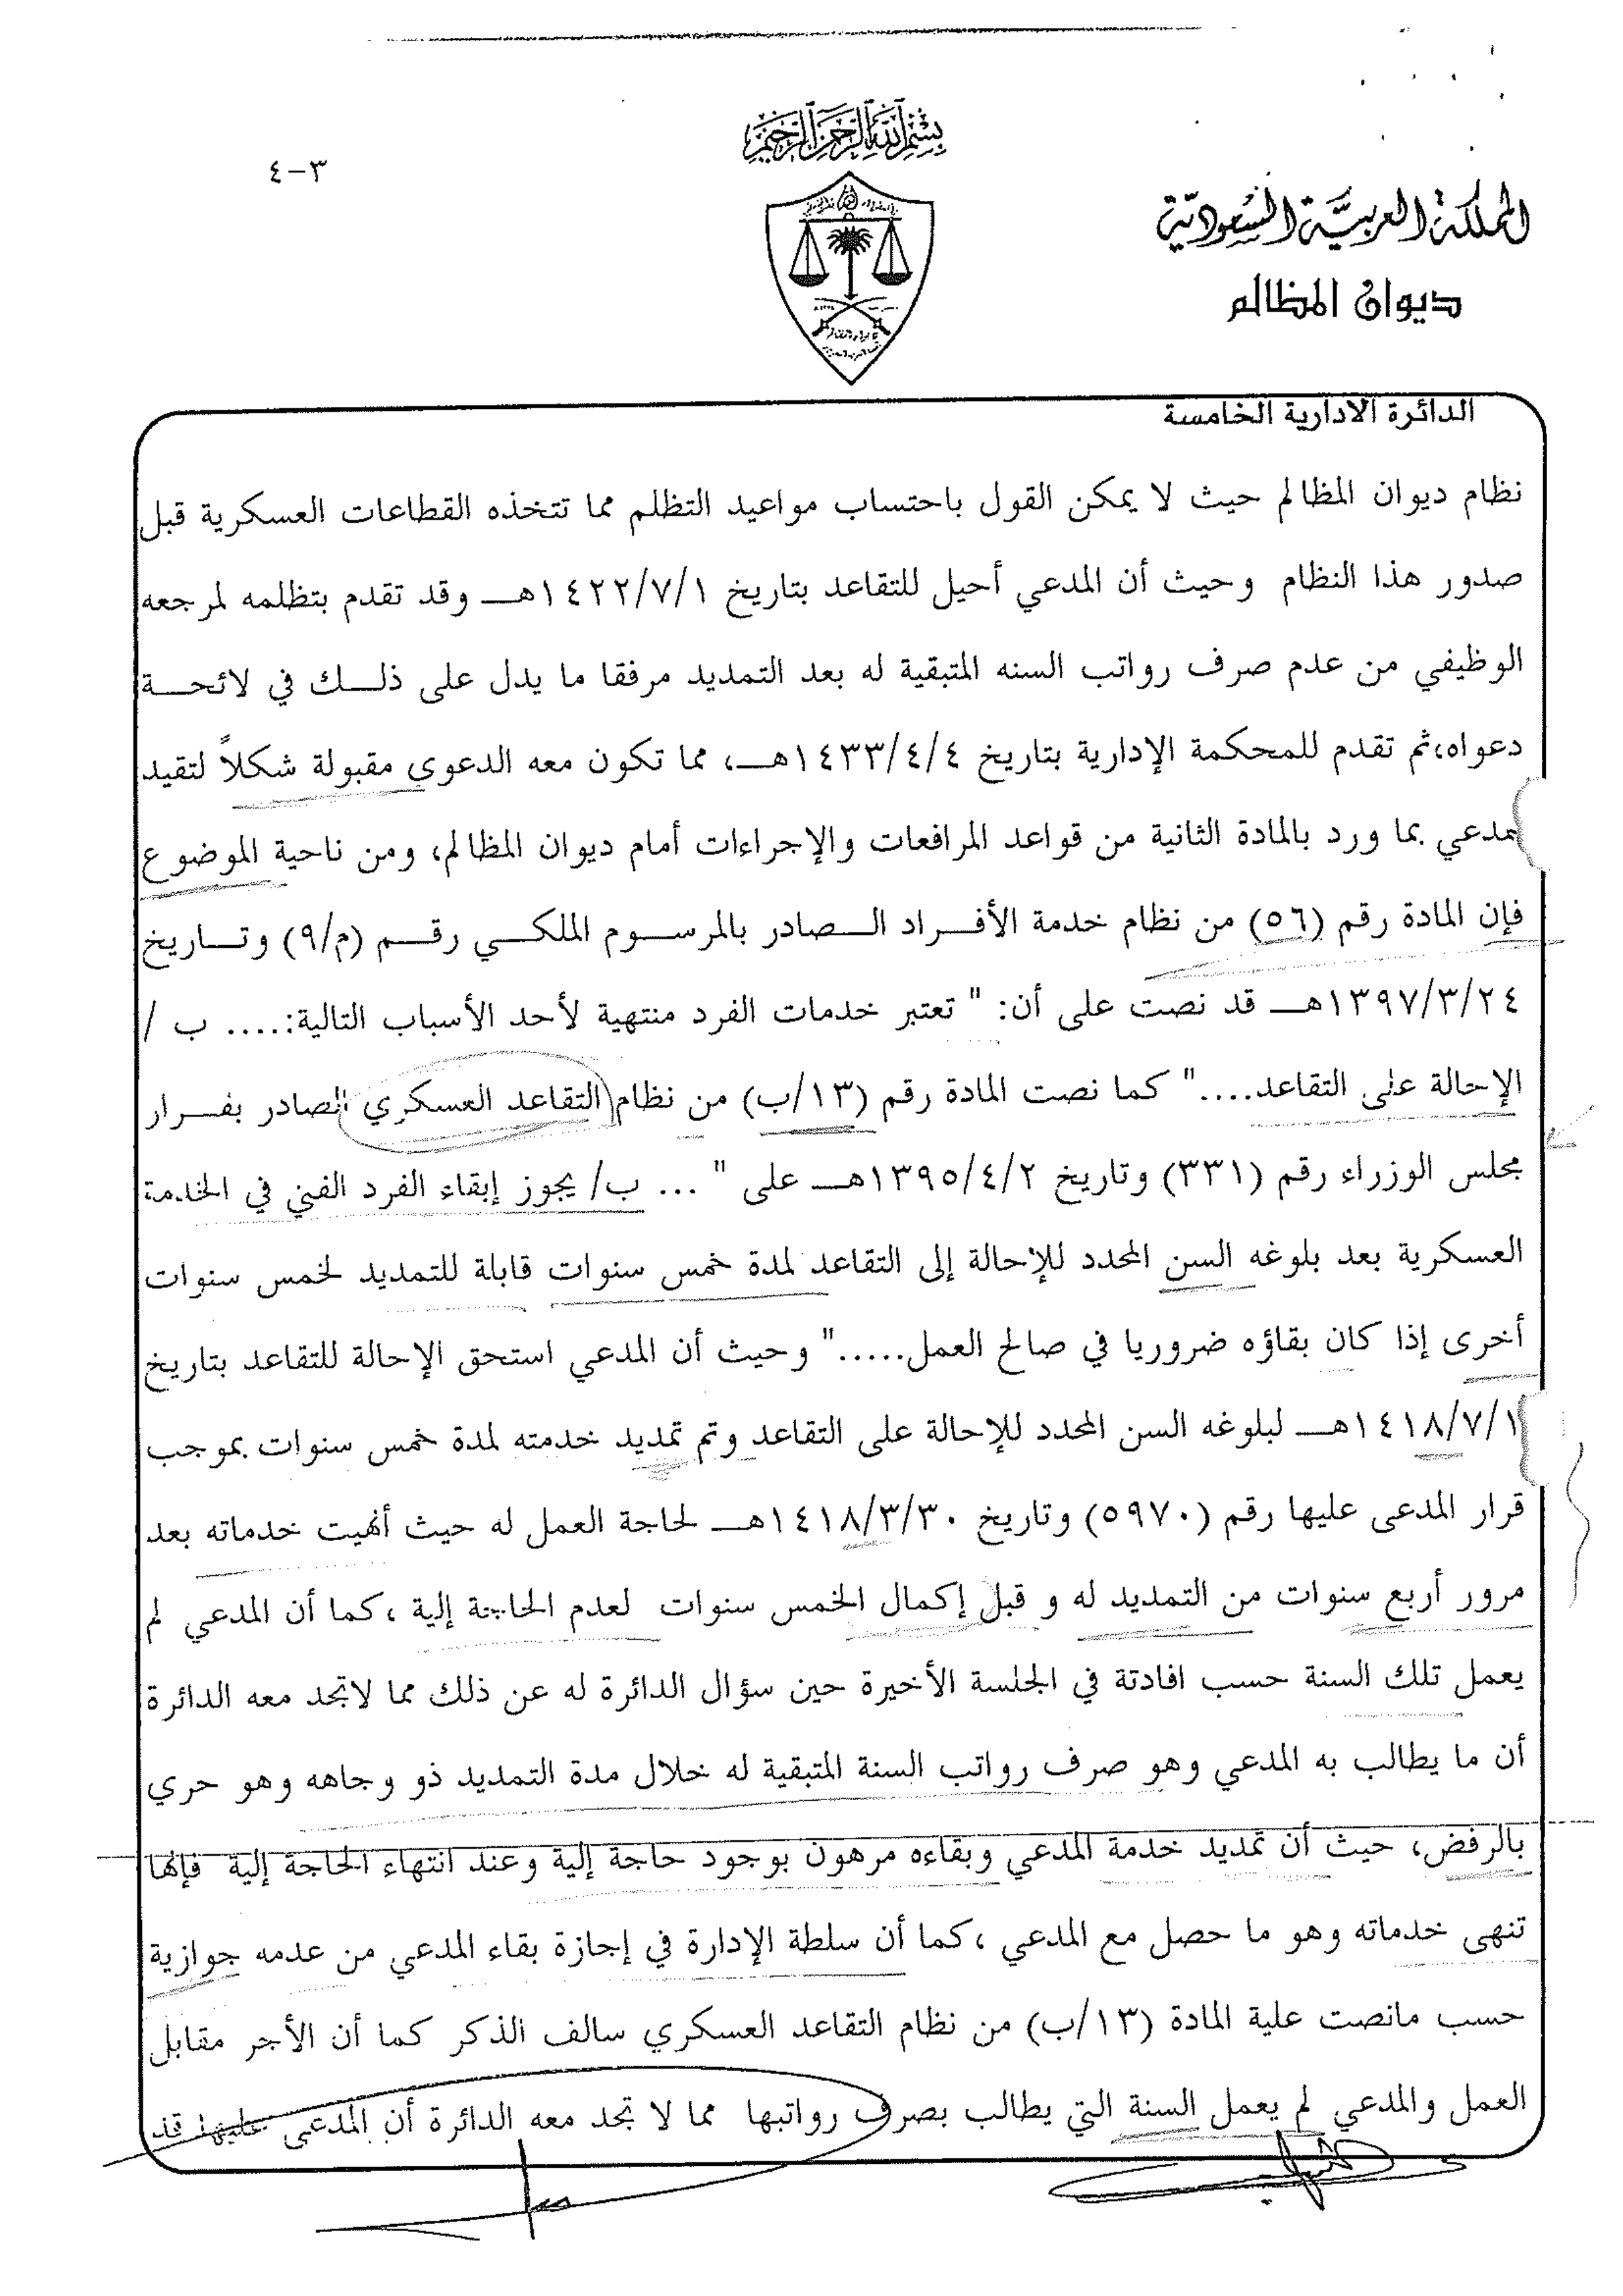 بسم الله الرحمن الرحيم
٣-٤
المملكة العربية السعودية
ديوان المظالم
الدائرة الادارية الخامسة
نظام ديوان المظالم حيث لا يمكن القول باحتساب مواعيد التظلم مما تتخذه القطاعات العسكرية قبل
صدور هذا النظام وحيث أن المدعي أحيل للتقاعد بتاريخ ١٤٢٢/٧/١هـ وقد تقدم بتظلمه لمرجعه
الوظيفي من عدم صرف رواتب السنه المتبقية له بعد التمديد مرفقا ما يدل على ذلك في لائحة
دعواه،ثم تقدم للمحكمة الإدارية بتاريخ ١٤٣٣/٤/٤هـ، مما تكون معه الدعوى مقبولة شكلاً لتقيد
مدعي بما ورد بالمادة الثانية من قواعد المرافعات والإجراءات أمام ديوان المظالم، ومن ناحية الموضوع
فإن المادة رقم (٥٦) من نظام خدمة الأفراد الصادر بالمرسوم الملكي رقم (م/٩) وتاريخ
١٣٩٧/٣/٢٤هـ قد نصت على أن: " تعتبر خدمات الفرد منتهية لأحد الأسباب التالية:.... ب /
الإحالة على التقاعد...." كما نصت المادة رقم (١٣/ب) من نظام التقاعد العسكري الصادر بقرار
مجلس الوزراء رقم (٣٣١) وتاريخ ١٣٩٥/٤/٢هـ على " ... ب/ يجوز إبقاء الفرد الفني في الخدمة
العسكرية بعد بلوغه السن المحدد للإحالة إلى التقاعد لمدة خمس سنوات قابلة للتمديد لخمس سنوات
أخرى إذا كان بقاؤه ضروريا في صالح العمل....." وحيث أن المدعي استحق الإحالة للتقاعد بتاريخ
١٤١٨/٧/١هـ لبلوغه السن المحدد للإحالة على التقاعد وتم تمديد خدمته لمدة خمس سنوات بموجب
قرار المدعى عليها رقم (٥٩٧٠) وتاريخ ١٤١٨/٣/٣٠هـ لحاجة العمل له حيث أنهيت خدماته بعد
مرور أربع سنوات من التمديد له و قبل إكمال الخمس سنوات لعدم الحاجة إلية ،كما أن المدعي لم
يعمل تلك السنة حسب افادتة في الجلسة الأخيرة حين سؤال الدائرة له عن ذلك مما لاتجد معه الدائرة
أن ما يطالب به المدعي وهو صرف رواتب السنة المتبقية له خلال مدة التمديد ذو وجاهه وهو حري
بالرفض، حيث أن تمديد خدمة المدعي وبقاءه مرهون بوجود حاجة إلية وعند انتهاء الحاجة إلية فإنها
تنهى خدماته وهو ما حصل مع المدعي ،كما أن سلطة الإدارة في إجازة بقاء المدعي من عدمه جوازية
حسب مانصت علية المادة (١٣/ب) من نظام التقاعد العسكري سالف الذكر كما أن الأجر مقابل
العمل والمدعي لم يعمل السنة التي يطالب بصرف رواتبها مما لا تجد معه الدائرة أن المدعى عليها قد